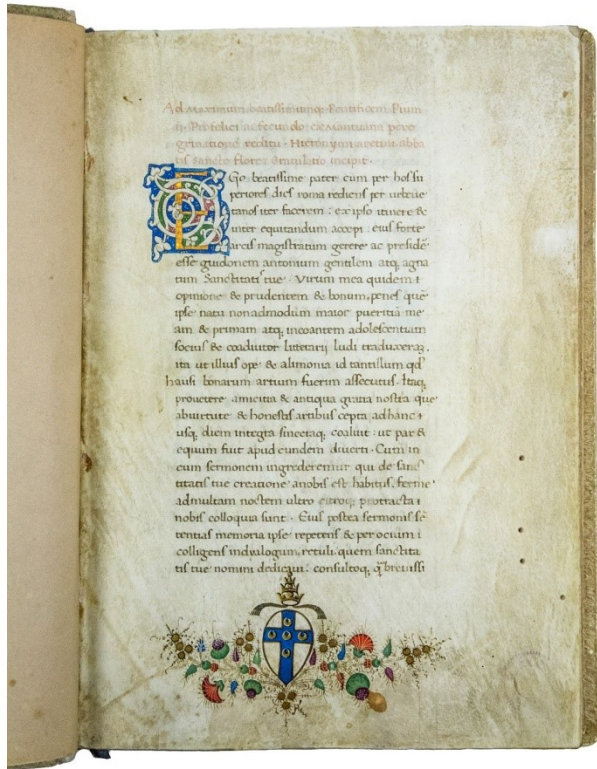 Ad maximum beatissimumq; Pontificem Pium
ii. Profelici ac fecundo ex Mantuana pere
grinatione reditu. Hieronymi aretini abba
tis Sancto flore gratulatio incipit.
EGo beatissime pater cum per hos su
periores dies roma rediens per urbeue
tanos iter facerem: ex ipso itinere &
inter equitandum accepi eius forte
arcis magistratum gerere ac preside
esse guidonem antonium gentilem atq; agna
tum Sanctitatis tue. Virum mea quidem
opinione & prudentem & bonum, penes que
ipse natu non admodum maior pueritia me
am & primam atq; incoantem adolescentiam
socius & coadiutor litterarij ludi traduxeram
ita ut illius ope & alimonia id tantillum qd
hausi bonarum artium fuerim assecutus. Itaq;
prouetere amicitia & antiqua gratia nostra que
abuirtute & honestis artibus cepta ad hanc
usq; diem integra sinceraq; coaluit: ut par &
equum fuit apud eundem diuerti. Cum in
eum sermonem ingrederemur qui de sanc
titatis tue creatione anobis est habitus, ferme
admultam noctem ultro citroq; protracta
nobis colloquia sunt. Eius postea sermonis se
tentias memoria ipse repetens & per ocium
colligens indialogum retuli quem sanctita
tis tue nomini dedicaui: consultoq; q breuissi